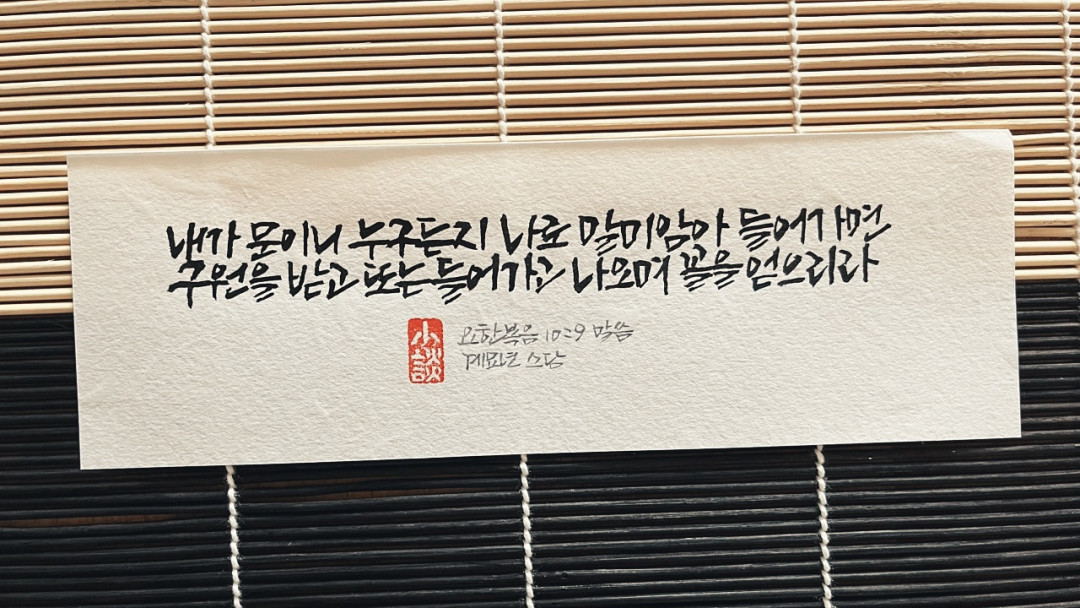 내가 문이니 누구든지 나로 말미암아 들어가면
구원을 받고 또는 들어가고 나오며 꼴을 얻으리라
小談
요한복음 10:9 말씀
계묘년 소담